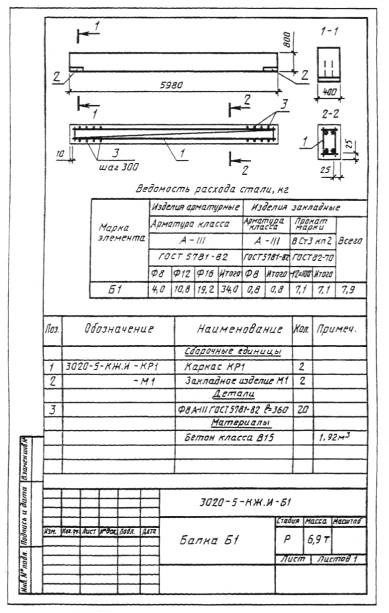 1
1-1
800
2
2
5980
400
1
2
3
2-2
1
10
3
шаг 300
1
2
25
25
Ведомость расхода стали, кг
Марка элемента
Изделия арматурные
Изделия закладные
Всего
Арматура класса
Арматура класса
Прокат марки
А-III
А-III
ВСт3 кп2
ГОСТ 5781-82
ГОСТ5781-82
ГОСТ82-70
Ф8 Ф12 Ф16 Итого Ф8 Итого Итого
Б1 4,0 10,8 19,2 34,0 0,8 0,8 7,1 7,1 7,9
Поз. Обозначение Наименование Кол. Примеч.
Сборочные единицы
1 3020-5-КЖ.И-КР1 Каркас КР1 2
2 -М1 Закладное изделие М1 2
Детали
3 Ф8АIII ГОСТ5781-82 ℓ=360 20
Материалы
Бетон класса В15 1,92м³
3020-5-КЖ.И-Б1
Изм. Кол.уч. Лист №док. Подп. Дата
Балка Б1
Стадия Масса Масштаб
Р 6,9 т
Лист Листов 1
Взам.инв.№
Подпись и дата
Инв.№ подл.